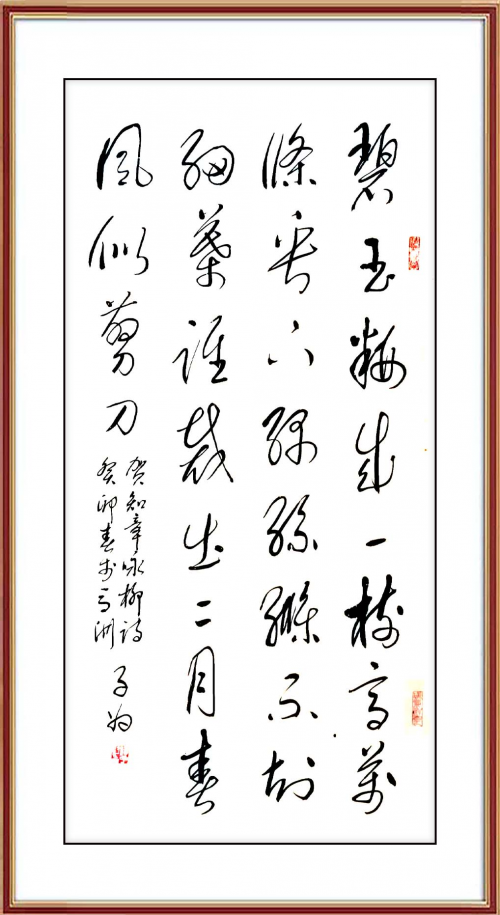 碧玉粧成一樹高萬
條垂下綠絲縧不知
細葉誰裁出二月春
風似剪刀
賀知章咏柳詩
癸卯春於洲
子为